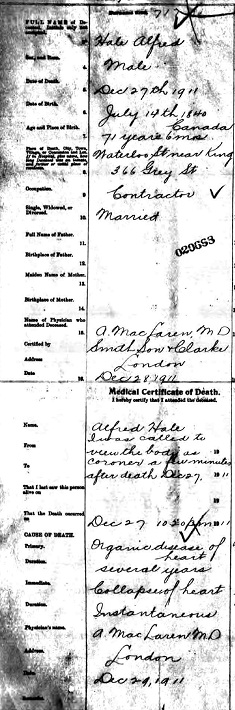 71
FULL NAME of Deceased.
Hale Alfred
Sex, and Race.
4.
Male
Date of Death.
5.
Dec 27th 1911
Date of Birth.
6.
July 14th 1840
Canada
Age and Place of Birth.
7.
71 years 6 mos.
Waterloo St near King
8.
366 Grey St
Occupation.
9
Contractor ✓
Single, Widowed, or Divorced.
10.
Married
Full Name of Father.
11.
Birthplace of Father.
12.
020653
Maiden Name of Mother.
13.
Birthplace of Mother.
14.
Name of Physician who attended Deceased.
15.
A. MacLaren, M D
Certified by
Smith Son & Clarke
Address
London
Date
16.
Dec 28, 1911
Medical Certificate of Death.
I hereby certify that I attended the deceased.
Name.
Alfred Hale
From
I was called to
view the body as
19
To
coroner a few minutes
after death Dec 27, 1911
That I last saw this person alive on
19
That the Death occurred on
Dec 27 10.30 pm 1911
CAUSE OF DEATH.
Primary.
Organic disease of
heart
Duration.
several years
Immediate.
Collapse of heart
Duration.
Instantaneous
Physician's name.
A. MacLaren MD
Address.
London
Date.
Dec 29, 1911
Remarks.